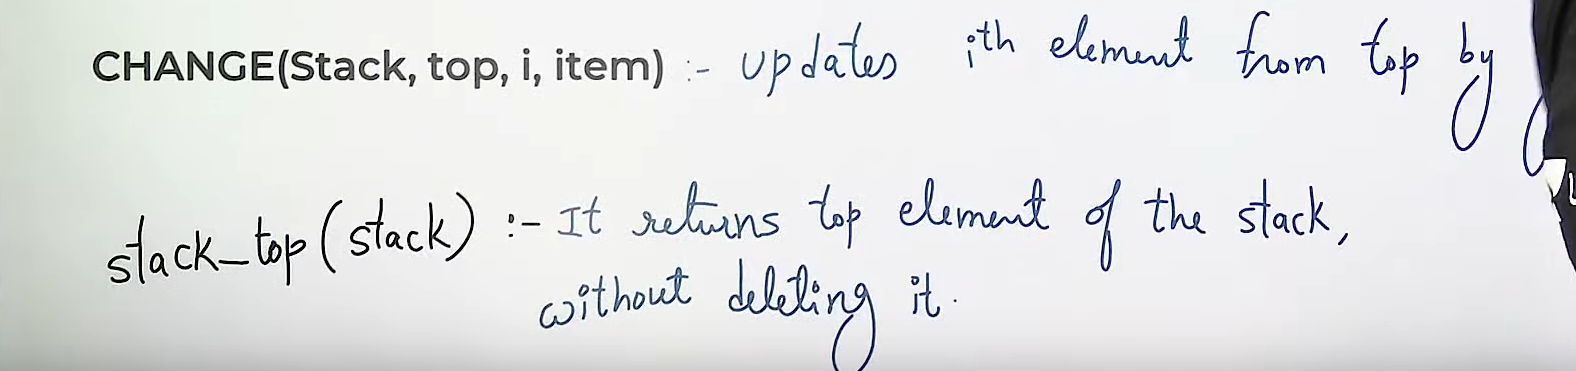 CHANGE(Stack, top, i, item) :- updates ith element from top by
stack_top(stack) :- It returns top element of the stack,
without deleting it.